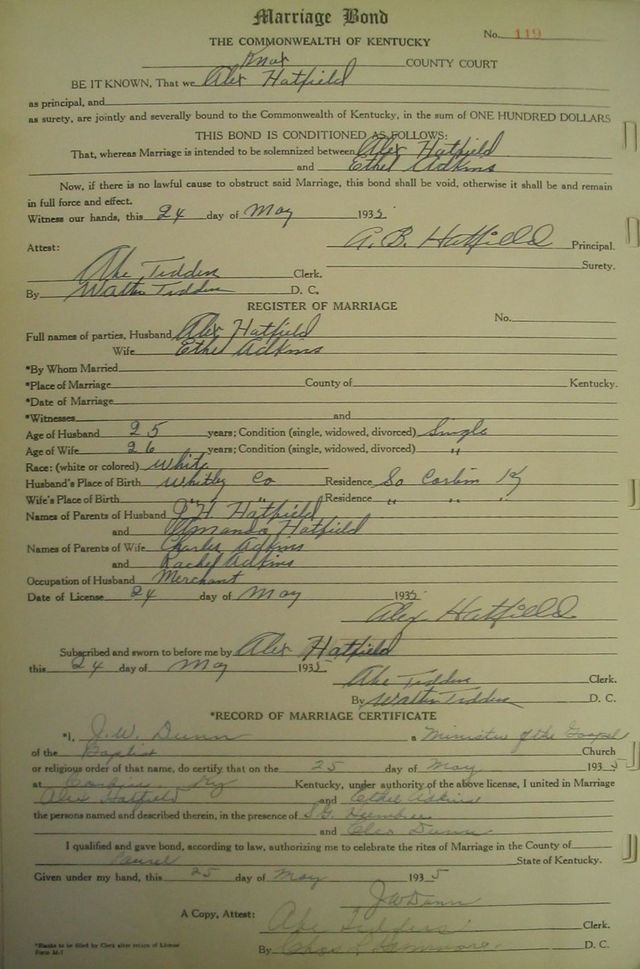 Marriage Bond
No. 119
THE COMMONWEALTH OF KENTUCKY
Knox COUNTY COURT
BE IT KNOWN, That we Alex Hatfield
as principal, and
as surety, are jointly and severally bound to the Commonwealth of Kentucky, in the sum of ONE HUNDRED DOLLARS
THIS BOND IS CONDITIONED AS FOLLOWS:
That, whereas Marriage is intended to be solemnized between Alex Hatfield
and Ethel Adkins
Now, if there is no lawful cause to obstruct said Marriage, this bond shall be void, otherwise it shall be and remain
in full force and effect.
Witness our hands, this 24 day of May 1935
A. B. Hatfield Principal.
Attest:
Surety.
Abe Tedders Clerk.
By Walter Tedders D. C.
REGISTER OF MARRIAGE
No.
Full names of parties, Husband Alex Hatfield
Wife Ethel Adkins
*By Whom Married
*Place of Marriage County of Kentucky.
*Date of Marriage
*Witnesses and
Age of Husband 25 years; Condition (single, widowed, divorced) Single
Age of Wife 26 years; Condition (single, widowed, divorced) "
Race: (white or colored) White
Husband's Place of Birth Whitley Co Residence So Corbin Ky
Wife's Place of Birth " " Residence " " "
Names of Parents of Husband J. H. Hatfield
and Amanda Hatfield
Names of Parents of Wife Charles Adkins
and Rachel Adkins
Occupation of Husband Merchant
Date of License 24 day of May 1935
Alex Hatfield
Subscribed and sworn to before me by Alex Hatfield
this 24 day of May 1935
Abe Tedders Clerk.
By Walter Tedders D. C.
*RECORD OF MARRIAGE CERTIFICATE
*I, J. W. Dunn a Minister of the Gospel
of the Baptist Church
or religious order of that name, do certify that on the 25 day of May 1935
at Corbin Ky Kentucky, under authority of the above license, I united in Marriage
Alex Hatfield and Ethel Adkins
the persons named and described therein, in the presence of
and Cleo Dunn
I qualified and gave bond, according to law, authorizing me to celebrate the rites of Marriage in the County of
Laurel State of Kentucky.
Given under my hand, this 25 day of May 1935
J W Dunn
A Copy, Attest: Abe Tedders Clerk.
By D. C.
*Blanks to be filled by Clerk after return of License